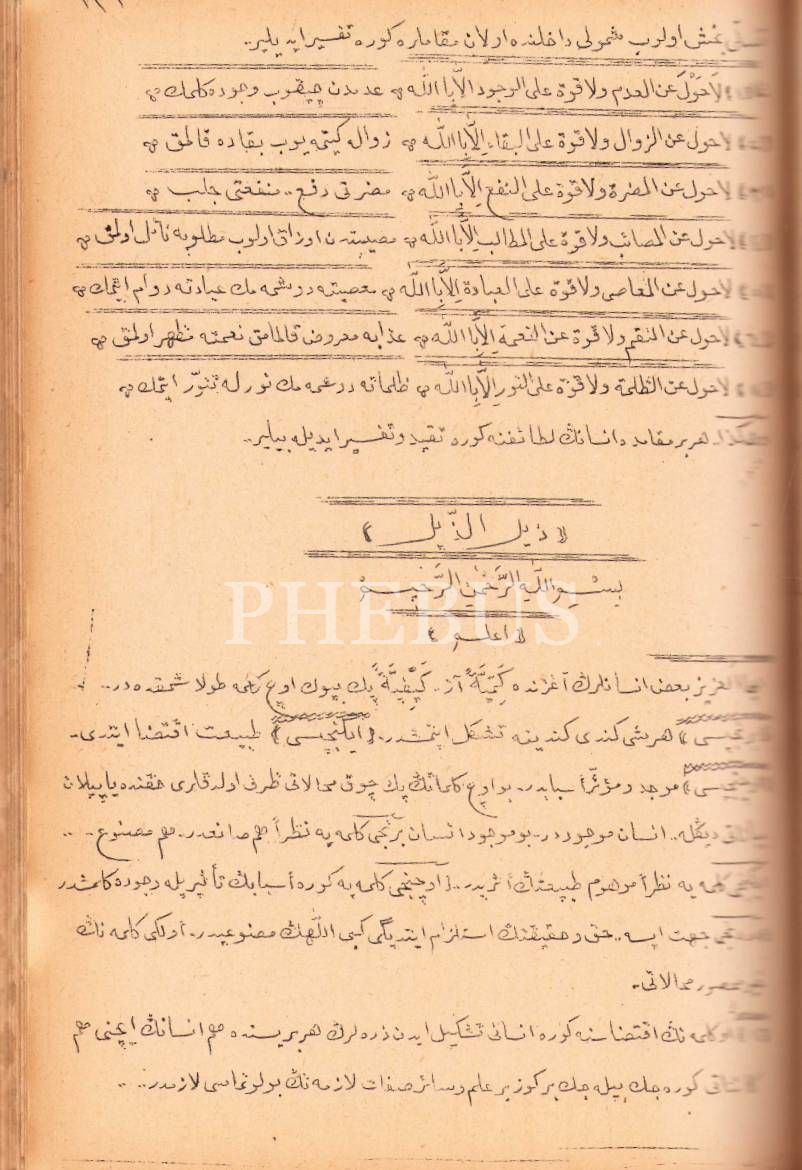 ١٢١
بخش اولوب شمولى داخلنده اولان مقاملره كوره تفسير ايديلير..
لاَحَوْلَ عن العدم ولا قوة على الوجود اِلاَّ باالله عدمدن چيقوب وجوده كلمك
لاحول عن الزوال ولا قوة على البقاء اِلاَّ باالله زواله كيتمه يوب بقاده قالمق
لاحول عن المضرة ولا قوة على النفع اِلاَّ باالله مضرتى دفع.. منفعتى جلب
لاحول عن المصائب ولا قوة على المطالب اِلاَّ باالله مصيبتدن اوزاق اولوب مطلوبه نائل اولمق
لاحول عن المعاصى ولا قوة على العبادة اِلاَّ باالله معصيته دوشمه مك عبادته دوام ايتمك
لاحول عن النقم ولا قوة عن النعمة اِلاَّ باالله عذابه معروض قالمامق نعمته مظهر اولمق
لاحول عن الظلمة ولا قوة على النور اِلاَّ باالله ظلماته دوشمه مك نور له تنوّر ايتمك
هكذا. هر بر مقامده انسانڭ لطائفنه كوره تقيد و تفسير ايديله بيلير..
﴿ ذيل الذّيل ﴾
بِسْمِ اللّٰهِ الرَّحْمٰنِ الرَّحِيمِ
﴿ اعلم ﴾
العزيز بعض انسانلرڭ آغزنده كَمِيَّةً آز.. كَيْفِيَّةً پك بيوك اوچ كلمه طولاشمقده در..
هر شى كندى كندينه تشكل ايتمشدر. ﴿ايكنجيسى﴾ طبيعت اقتضا ايتدى.
موجد و مؤثر أسبابدر. بو اوچ كلمانڭ پك چوق محالاتى ظرف اولدقلرى حقنده ياپيلان
ديڭله.. انسان موجوددر. بو موجود انسان برنجى كلمه يه نظراً هم صانعدر. هم مصنوع.
كلمه يه نظراً موهوم طبيعتڭ أثريدر.. اوچنجى كلمه يه كوره أسبابڭ تأثيريله وجوده كلمشدر
جهت ايسه.. حق و حقيقتڭ استلزام ايتديگى كبى اللّٰهڭ مصنوعيدر. أولكى كلمه نڭ
محالاتى.
كلمه نڭ اقتضاسنه كوره انسانى تشكيل ايدن ذره لرڭ هر بريسنده هم انسانڭ ايچنى هم
كوره جك بيله جك بر كوز بر علم و سائر صفات لازمه نڭ بولونماسى لازمدر..
PHEBUS